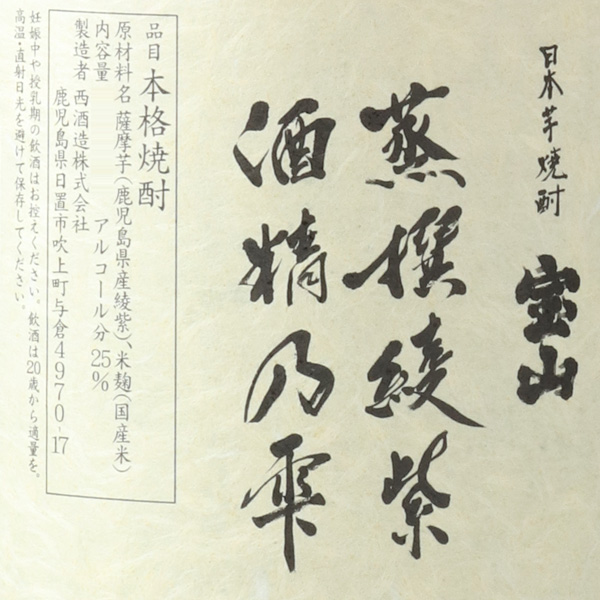 日本芋焼酎 宝山
蒸撰綾紫
酒精乃雫
品目 本格焼酎
原材料名 薩摩芋(鹿児島県産綾紫)、米麹(国産米)
内容量 アルコール分25%
製造者 西酒造株式会社
鹿児島県日置市吹上町与倉4970-17
妊娠中や授乳期の飲酒はお控えください。飲酒は20歳から適量を。
高温・直射日光を避けて保存してください。